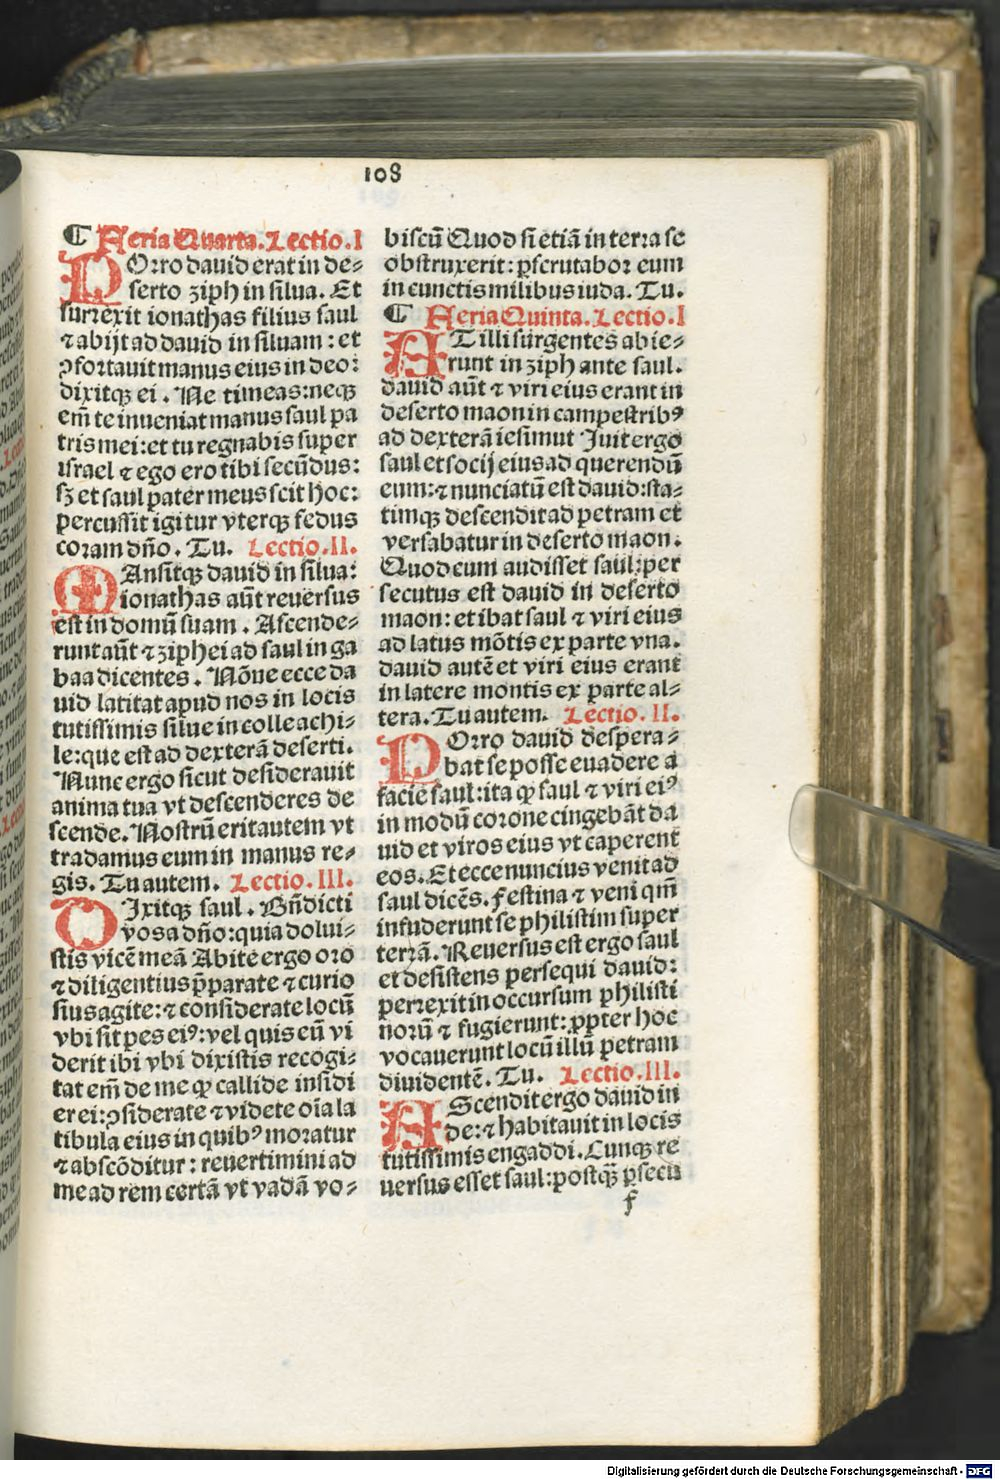 108
¶ Feria Quarta. Lectio. I
POrro dauid erat in de⸗
serto ziph in silua. Et
surrexit ionathas filius saul
⁊ abijt ad dauid in siluam : et
ꝯfortauit manus eius in deo:
dixitqꝫ ei . Ne timeas: neqꝫ
em̄ te inueniat manus saul pa
tris mei: et tu regnabis super
israel ⁊ ego ero tibi secūdus:
sꝫ et saul pater meus scit hoc:
percussit igitur vterqꝫ fedus
coram dño . Tu. Lectio. II.
MAnsitqꝫ dauid in silua:
ionathas aūt reuersus
est in domū suam . Ascende⸗
runt aūt ⁊ ziphei ad saul in ga
baa dicentes . Nōne ecce da
uid latitat apud nos in locis
tutissimis silue in colle achi⸗
le: que est ad dexterā deserti.
Nunc ergo sicut desiderauit
anima tua vt descenderes de
scende. Nostrū erit autem vt
tradamus eum in manus re⸗
gis. Tu autem. Lectio. III.
DIxitqꝫ saul . Bñdicti
vos a dño: quia dolui⸗
stis vicē meā Abite ergo oro
⁊ diligentius p̄parate ⁊ curio
sius agite: ⁊ considerate locū
vbi sit pes eiꝰ: vel quis eū vi
derit ibi vbi dixistis recogi⸗
tat em̄ de me ꝙ callide insidi
er ei: ꝯsiderate ⁊ videte oīa la
tibula eius in quibꝰ moratur
⁊ abscōditur : reuertimini ad
me ad rem certā vt vadā vo⸗
biscū Quod si etiā in terra se
obstruxerit : ꝑscrutabor eum
in cunctis milibus iuda. Tu.
¶ Feria Quinta. Lectio. I
AT illi surgentes abie⸗
runt in ziph ante saul.
dauid aūt ⁊ viri eius erant in
deserto maon in campestribꝰ
ad dexterā iesimut Iuit ergo
saul et socij eius ad querendū
eum: ⁊ nunciatū est dauid: sta⸗
timqꝫ descendit ad petram et
versabatur in deserto maon.
Quod cum audisset saul: per
secutus est dauid in deserto
maon: et ibat saul ⁊ viri eius
ad latus mōtis ex parte vna.
dauid autē et viri eius erant
in latere montis ex parte al⸗
tera. Tu autem. Lectio. II.
POrro dauid despera⸗
bat se posse euadere a
facie saul: ita ꝙ saul ⁊ viri eiꝰ
in modū corone cingebāt da
uid et viros eius vt caperent
eos. Et ecce nuncius venit ad
saul dicēs. Festina ⁊ veni qm̄
infuderunt se philistim super
terrā. Reuersus est ergo saul
et desistens persequi dauid:
perrexit in occursum philisti
norū ⁊ fugierunt: ꝓpter hoc
vocauerunt locū illū petram
diuidentē. Tu. Lectio. III.
AScendit ergo dauid in
de: ⁊ habitauit in locis
tutissimis engaddi. Cunqꝫ re
uersus esset saul: postqꝫ̄ ꝑsecu
f
Digitalisierung gefördert durch die Deutsche Forschungsgemeinschaft - DFG